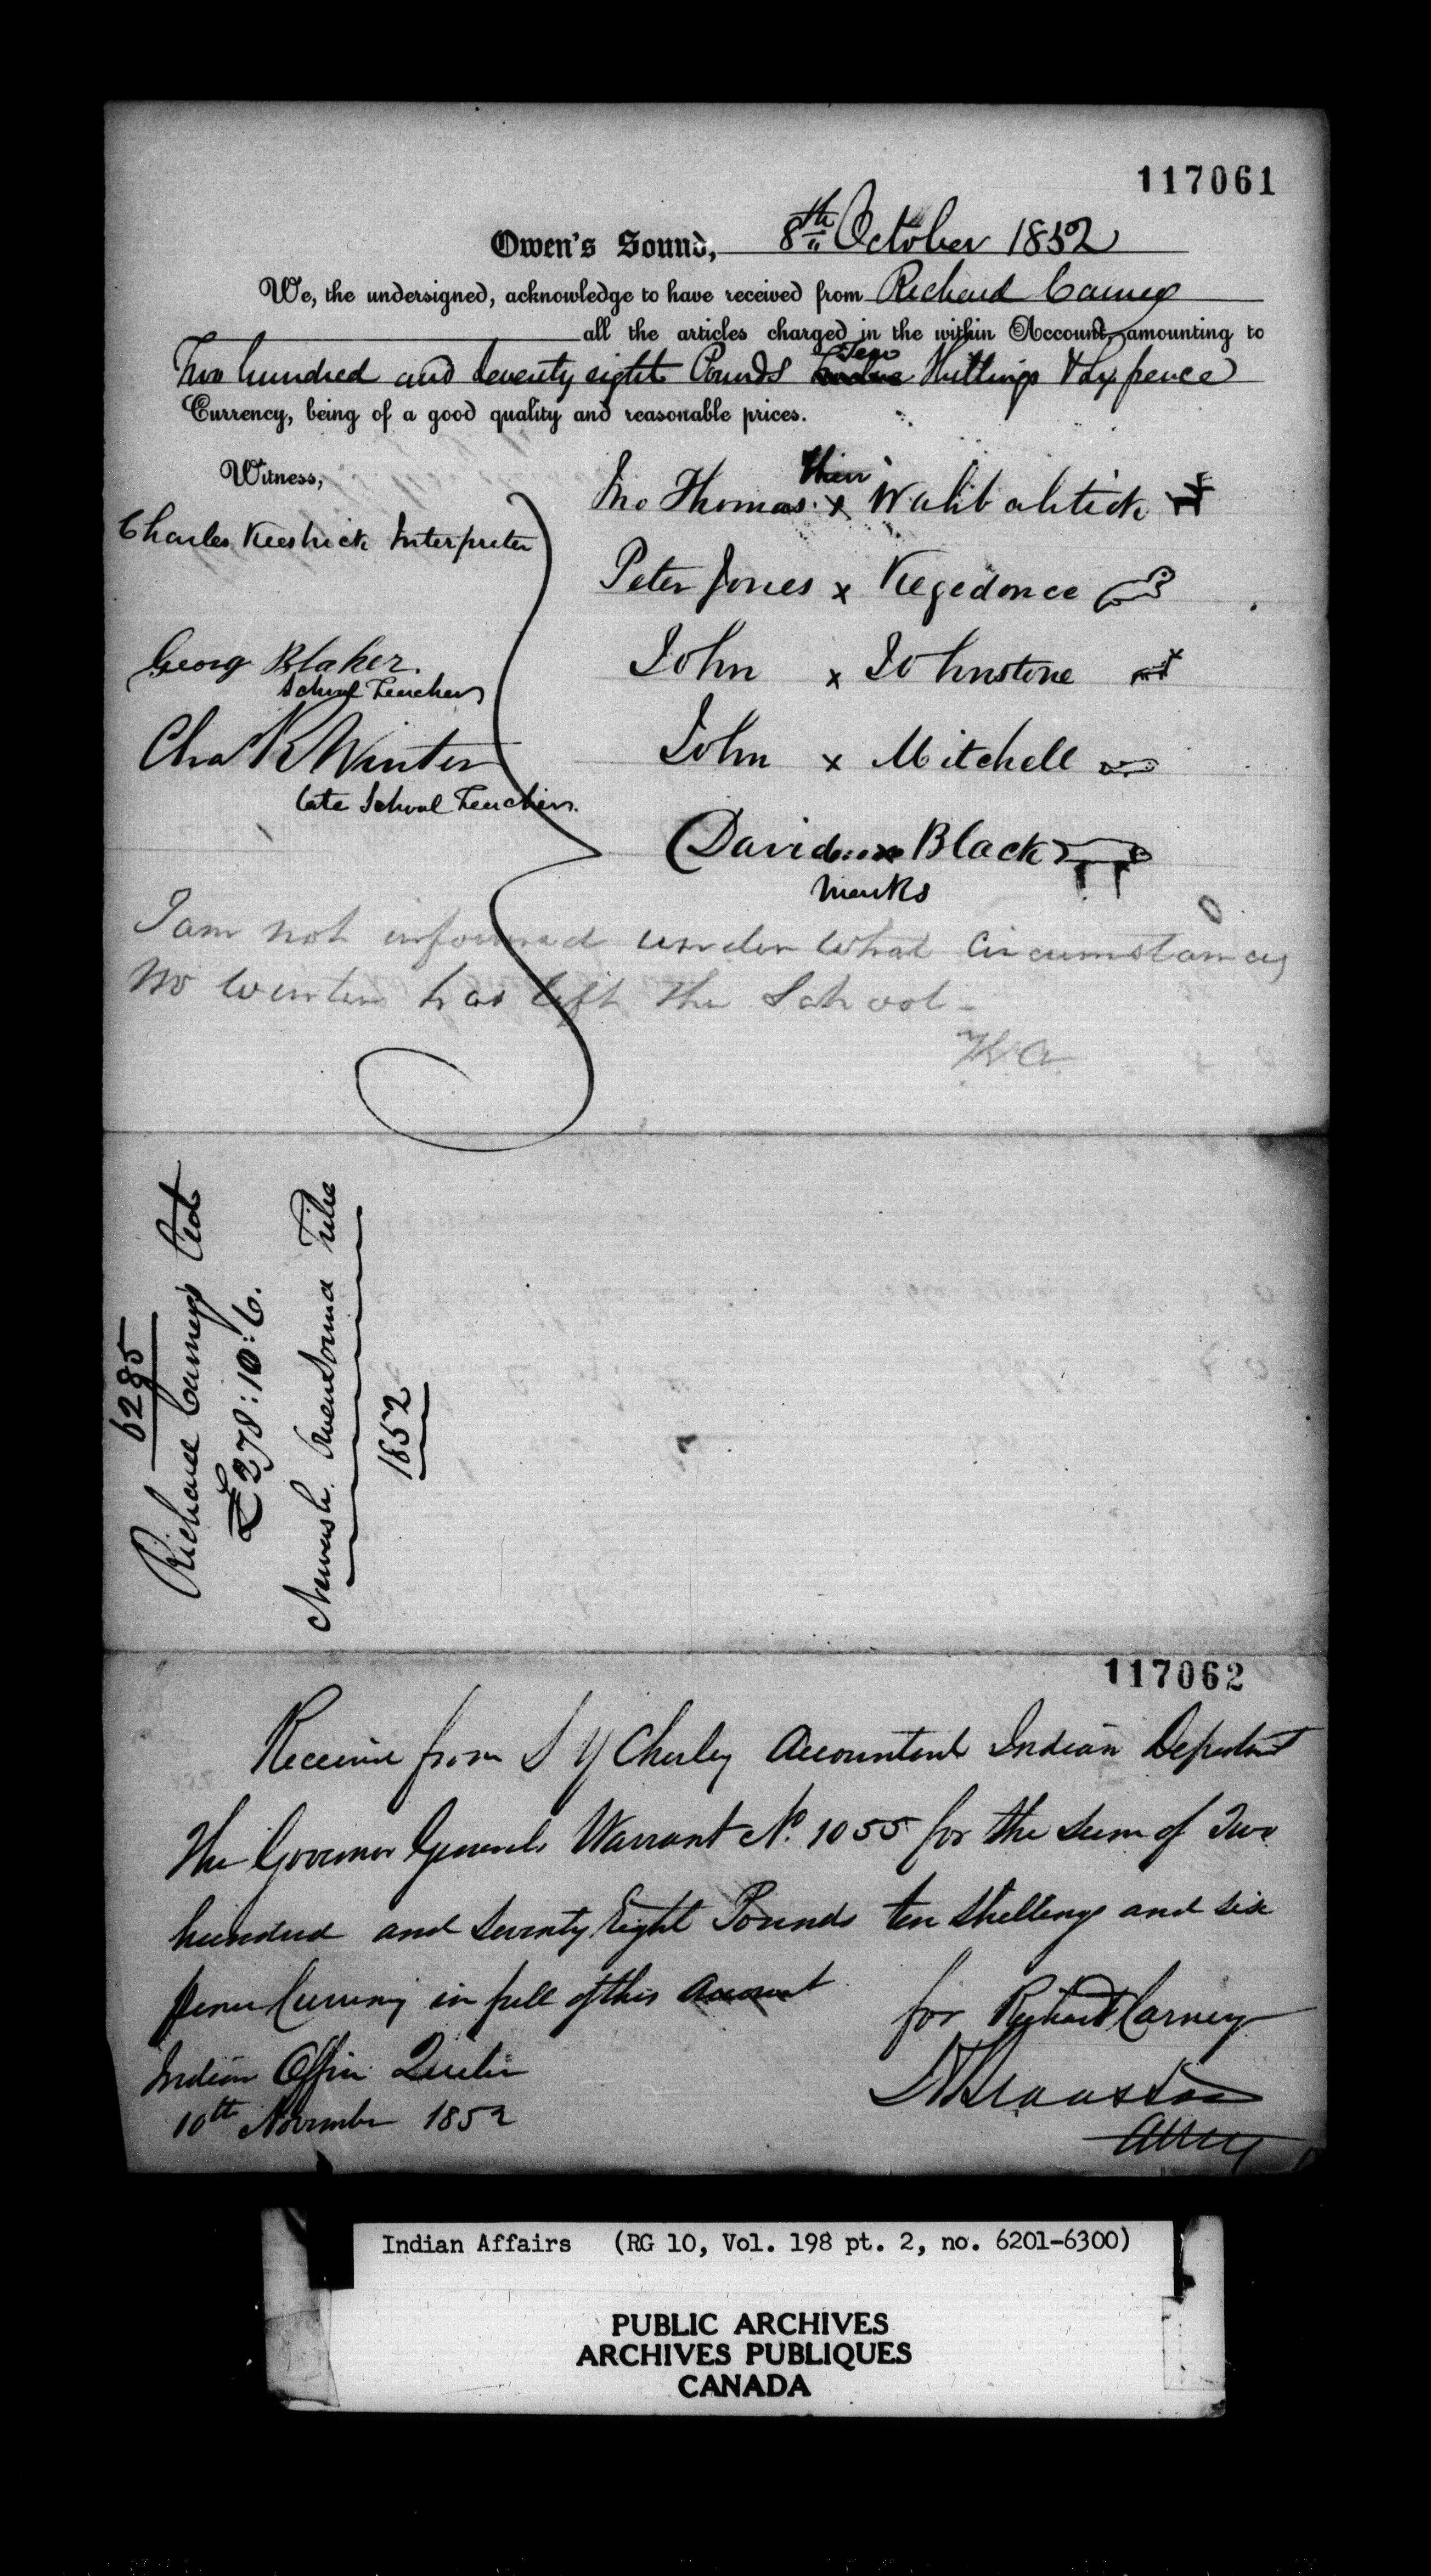 117061
Owen's Sound, 8th October 1852
We, the undersigned, acknowledge to have received from Richard Carney
all the articles charged in the within Account, amounting to
Two hundred and Seventy eight Pounds Ten Shillings & Six pence
Currency, being of a good quality and reasonable prices.
Witness,
Charles Keeshick Interpreter
Georg Blaker.
School Teacher
Chas R Winter
late School Teacher.
Their
Jno Thomas x Wahbahtick
Peter Jones x Kegedonce
John x Johnstone
John x Mitchell
David x Black
marks
I am not informed under what Circumstances
Mr Winter has left the School-
6285
Richard Carney's Acct
£278:10:6.
Newash. Owen Sound Tribe
1852
117062
Receive from S Y Chesley Accountant Indian Department
The Governor Generals Warrant No. 1055 for the Sum of Two
hundred and Seventy Eight Pounds ten Shillings and six
pence Currency in full of this Account
for Richard Carney
Indian Office Quebec
10th November 1852
Atty
Indian Affairs (RG 10, Vol. 198 pt. 2, no. 6201-6300)
PUBLIC ARCHIVES
ARCHIVES PUBLIQUES
CANADA